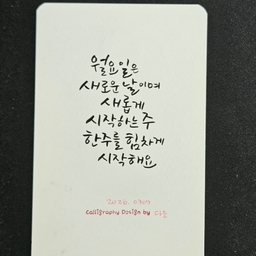 월요일은
새로운 날이며
새롭게
시작하는 주
한주를 힘차게
시작해요
Calligraphy Design by